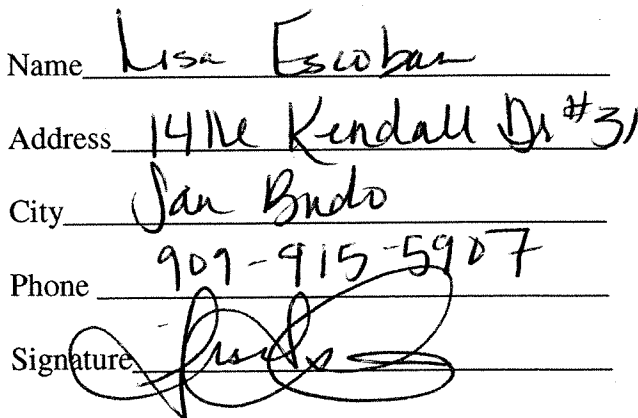 Name Lisa Escobar
Address 1416 Kendall Dr #31
City San Brndo
Phone 909-915-5907
Signature